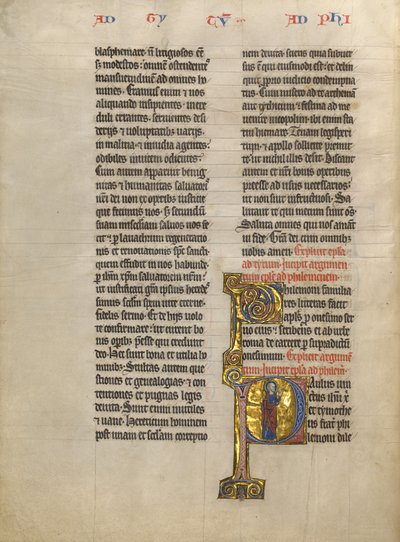 AD TY TV̄ AD PHI
blasphemare. n̄ litigiosos eē
s; modestos. omnē ostendentes
mansuetudinē ad omnes ho
mines. Eramus enim et nos
aliquando insipientes. incre
duli errantes. seruientes desi
derijs et uoluptatibus uarijs.
in malitia et inuidia agentes.
odibiles inuicem odientes.
Cum autem apparuit benig
nitas et humanitas saluatoris
nr̄i dei non ex operibus iusticie
que fecimus nos. s; secundū
suam misc̄diam saluos nos fe
cit. p lauachrum regenerationis
et renouationis sp̄c sancti
quem effudit in nos habunde
p ih̄m xp̄m saluatorem nr̄m.
ut iustificati gr̄a ipsius heredes
simus scd̄m spem uite eterne.
fidelis sermo. Et de hijs uolo
te confirmare. ut curent bo
nis operibus p̄esse qui credunt
deo. Hec sunt bona et utilia ho
minibus. Stultas autem que
stiones et genealogias. et con
tentiones et pugnas legis
deuita. Sunt enim inutiles
et uane. Hereticum hominem
post unam et scd̄am correptio
nem deuita. sciens quia subuer
sus ē qui eiusmodi est. et delin
quit proprio iudicio condempna
tus. Cum misero ad te arthemā
aut tychicum. festina ad me
uenire nicopolim. ibi enim sta
tui hiemare. Zenam legisperi
tum et apollo sollicite premit
te. ut nichil illis desit. Discant
autem et nr̄i bonis operibus
preesse ad usus necessarios.
ut non sint infructuosi. Sa
lutant te qui mecum sunt oms̄.
Saluta omnes qui nos amant
in fide. Gr̄a dei cum omnibus
uobis amen. Explicit epl̄a
ad tytum. Incipit argumen
tum epl̄e ad philemonem.
Philemoni familia
res litteras facit
ap̄ls p onesimo ser
uo eius. scribens ei ab urbe
roma de carcere p supradictū
onesimum. Explicit argumen
tum. Incipit epl̄a ad philem̄.
Paulus uin
ctus ih̄u x̄
et tymothe
us frat̄ phi
lemoni dile